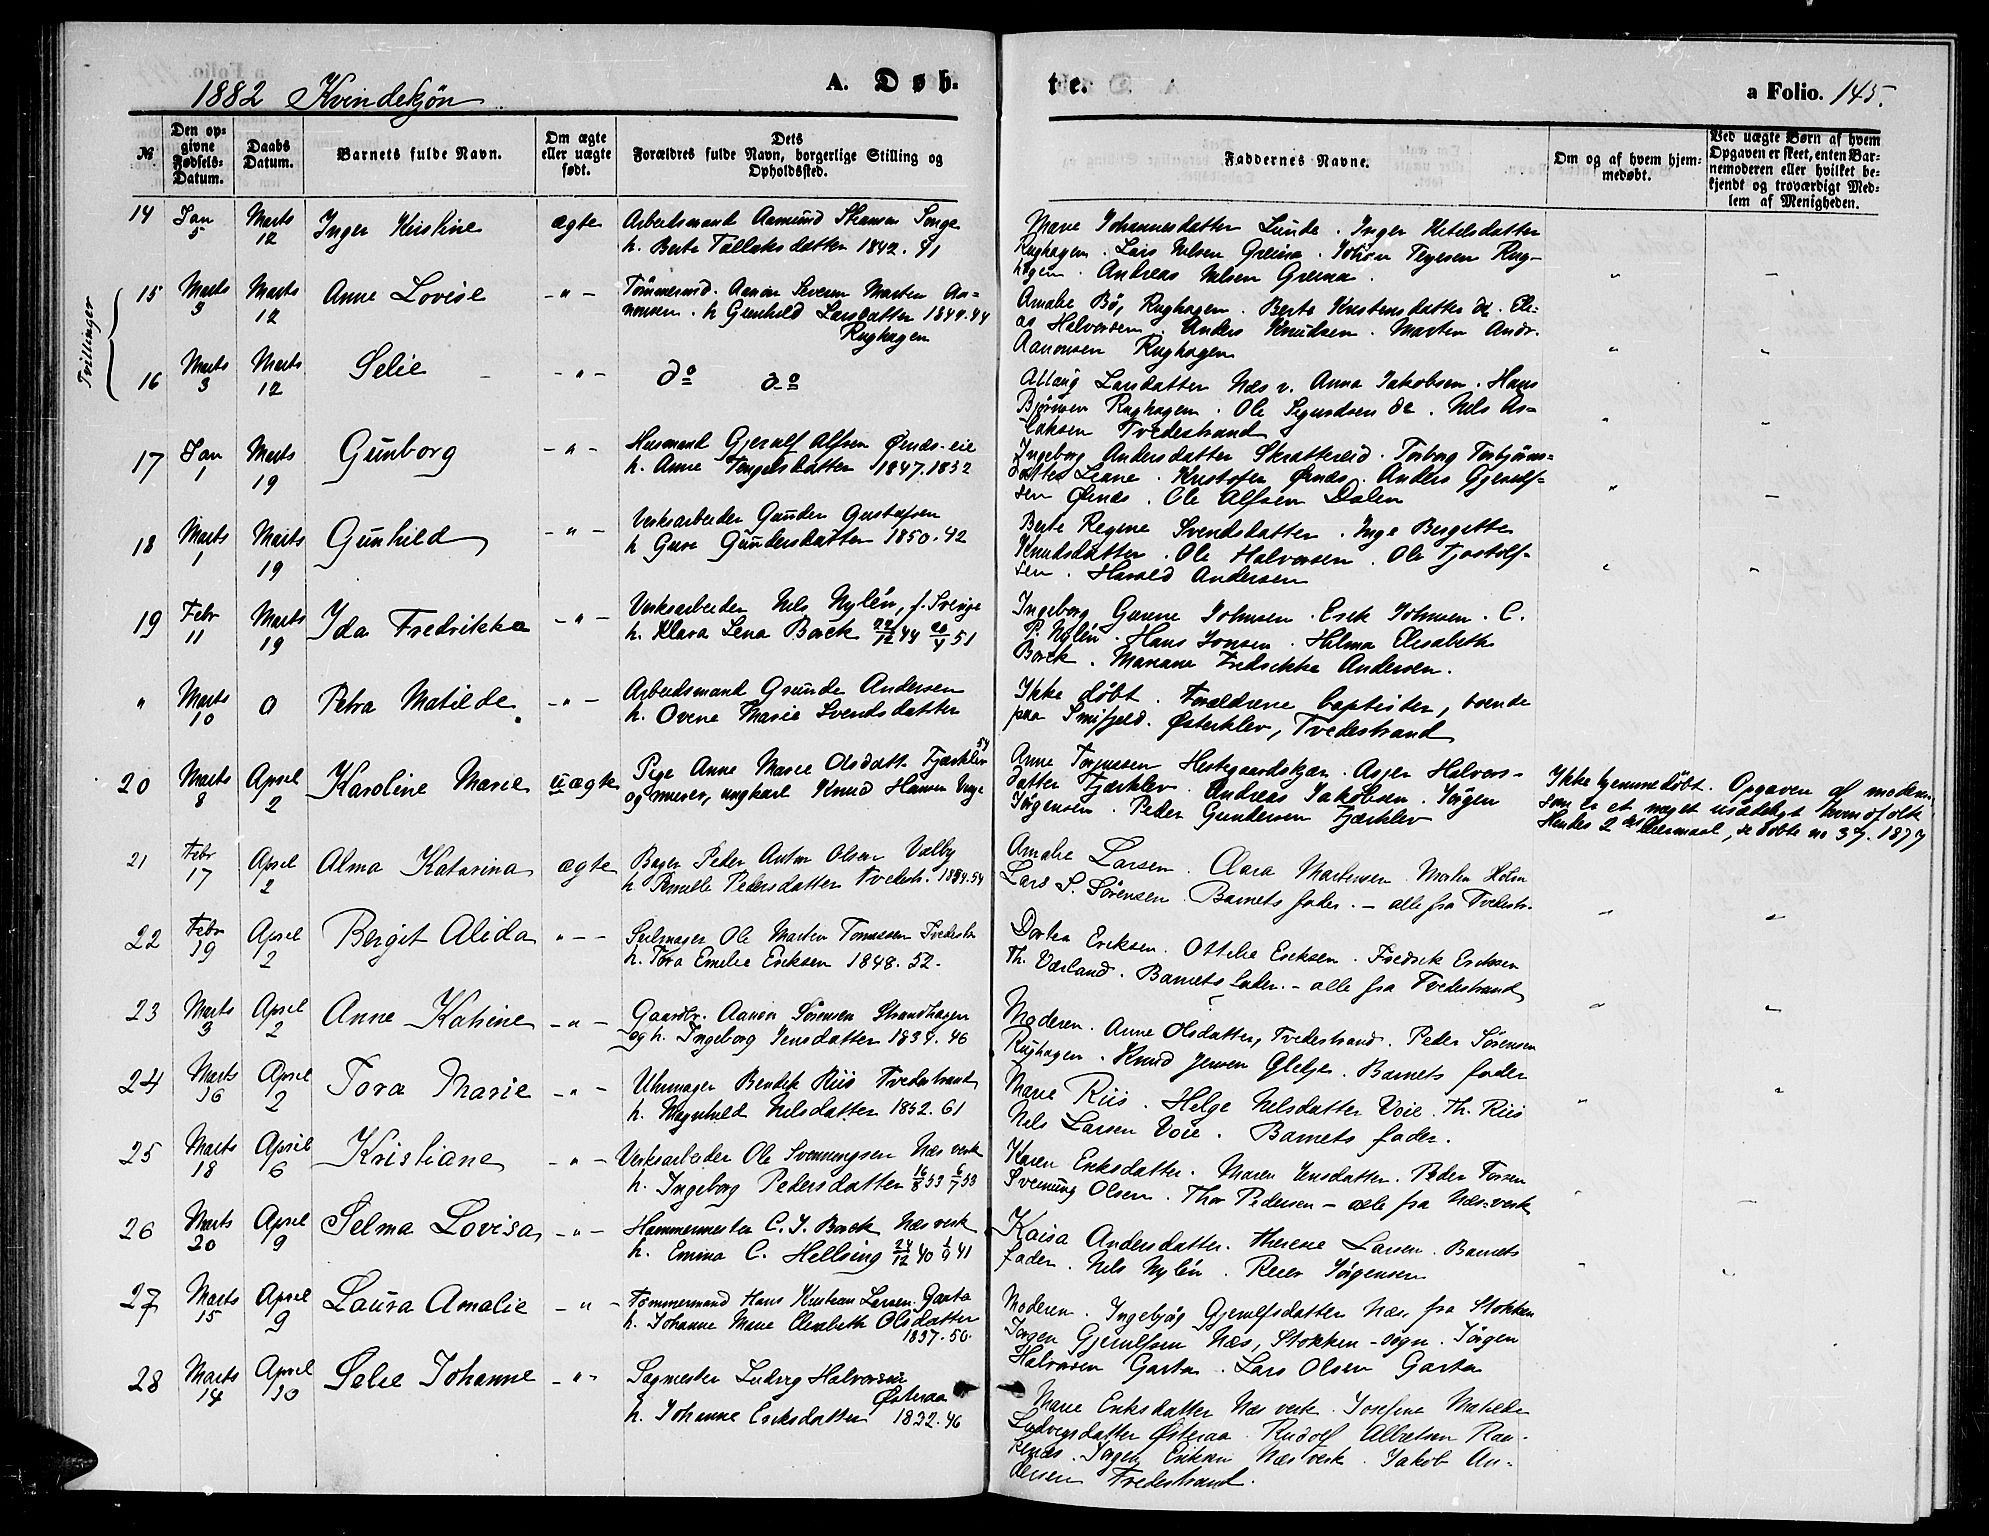 1882 Kvindekjøn
A. Døb-
te.
a Folio. 145.
№
Den op-
givne
Fødsels-
Datum.
Daabs
Datum.
Barnets fulde Navn.
Om ægte
eller uægte
født.
Dets
Forældres fulde Navn, borgerlige Stilling og
Opholdssted.
Faddernes Navne.
Om og af hvem hjem-
medøbt.
Ved uægte Børn af hvem
Opgaven er skeet, enten Bar-
nemoderen eller hvilket be-
kjendt og troværdigt Med-
lem af Menigheden.
14 Jan 5 Marts 12 Inger Kirstine ægte Arbeidsmand Aamund Songe
h. Berte Tallaksdatter 1842. 41
Marie Johannesdatter Lunde. Inger Ketelsdatter
Rughagen. Lars Nelsen Greina. Johan Rug-
hagen. Andreas Nelsen Greina.
Tvillinger
15 Marts 3 Marts 12 Anne Lovise -"- Tømmermd. Aanon Severin Marten Aa-
nonsen. h Gunhild Larsdatter 1844.44
Rughagen
Amalie Bø, Rughagen. Berte Kristensdatter do. Eli-
as Halvorsen. Anders Knudsen. Marten Andr.
Aanonsen Rughagen
16 Marts 3 Marts 12 Selie -"- do do
Aslaug Larsdatter Næs v. Anna Jakobsen. Hans
Bjørnsen Rughagen. Ole Sigurdsen do. Nels As-
laksen Tvedestrand
17 Jan 1 Marts 19 Gunborg -"- Husmand Gjerulf Alfsen Ørnæs-eie
h. Anne Tengelsdatter 1847.1852
Ingeborg Andersdatter Skrattereid. Torborg Torbjørns-
datter Leane. Kristofer Ørnæs. Anders Gjerulf-
sen Ørnæs. Ole Alfsen Dalen
18 Marts 1 Marts 19 Gunhild -"- Verksarbeider Gunder Gustafsen
h Guro Gundersdatter 1850.42
Berte Regine Svendsdatter. Inge Bergette
Knudsdatter. Ole Halvorsen. Ole Tjostolf-
sen. Harald Andersen
19 Febr 11 Marts 19 Ida Fredrikke -"- Verksarbeider Nels Nylén, f. Sverige
h. Klara Lena Borck 22/12 44 20/4 51
Ingeborg Gurine Johnsen. Erik Johnsen. C.
P. Nylén. Hans Jonsen. Hilma Elisabeth
Borck. Mariane Fredrikke Andersen.
" Marts 10 0 Petra Matilde -"- Arbeidsmand Grunde Andersen
h. Ovene Marie Svendsdatter
Ikke døbt. Forældrene baptister, boende
paa Smifjeld. Østerklev, Tvedestrand
20 Marts 8 April 2 Karoline Marie uægte Pige Anne Marie Olsdatt. Fjærklev 54
og murer, ungkarl Knud Hansen
Anne Hestgaardskjær. Asjer Halvors-
datter Fjærklev. Andreas Jakobsen. Jørgen
Jørgensen. Peder Gundersen Fjærklev
Ikke hjemmedøbt. Opgaven af moderen
som er et meget usædeligt kvindfolk
Hendes 2det leiermaal, se døbte no 37. 1877
21 Febr 17 April 2 Alma Katarina ægte Bager Peder Anton Olsen Valby
h Pernille Pedersdatter Tvedestr. 1854.54
Amalie Larsen. Clara Martensen. Malin Holm
Lars S. Sørensen. Barnets fader. - alle fra Tvedestr.
22 Febr 19 April 2 Bergit Alida "-- Seilmager Ole Marten Tonnesen Tvedestr
h. Tora Emelie Eriksen 1848. 52.
Dortea Eriksen. Ottilie Eriksen. Fredrik Erikssen
Th. Værland. Barnets fader. - alle fra Tvedestrand
23 Marts 3 April 2 Anne Katrine -"- Gaardbr. Aanon Sørensen Strandhagen
og h. Ingeborg Jensdatter 1834. 46
Moderen. Anne Olsdatter, Tvedestrand. Peder Sørensen
Rughagen. Knud Jensen Glebje. Barnets fader
24 Marts 16 April 2 Tora Marie -"- Uhrmager Bendik Riis Tvedestrand
h. Magnhild Nelsdatter 1852. 61
Marie Riis. Helge Nelsdatter Voie. Th. Riis
Nils Larsen Voie. Barnets fader.
25 Marts 18 April 6 Kristiane -"- Verksarbeider Ole Svenningsen Næs verk
h. Ingeborg Pedersdatter 16/8 53 6/7 53
Karen Eriksdatter. Maren Jensdatter. Peder Torsen
Svenning Olsen. Thor Pedersen - alle fra Næs-verk
26 Marts 20 April 9 Selma Lovisa -"- Hammermester C. J. Borck Næs verk
h. Emma C. Hellsing 24/12 40 1/9 41
Kaisa Andersdatter. Therese Larsen. Barnets
fader. Nils Nylén. Reier Jørgensen
27 Marts 15 April 9 Laura Amalie -"- Tømmermand Hans Kristian Larsen Garta
h. Johanne Marie Elisabeth Olsdatter
1837.50
Moderen. Ingebjørg Gjerulfsdatter Næs, fra Stokken
Jørgen Gjerulfsen Næs, Stokken-sogn. Jørgen
Halvorsen Garta. Lars Olsen Garta
28 Marts 14 April 10 Selie Johanne -"- Sagmester Ludvig Halvorsen
Østeraa
h. Johanne Eriksdatter 1832.46
Marie Eriksdatter Næs verk. Josefine Matilde
Ludvigsdatter Østeraa. Rudolf Albertsen Ran-
elnæs. Jørgen Eriksen Næs verk. Jakob An-
dersen Tvedestrand.